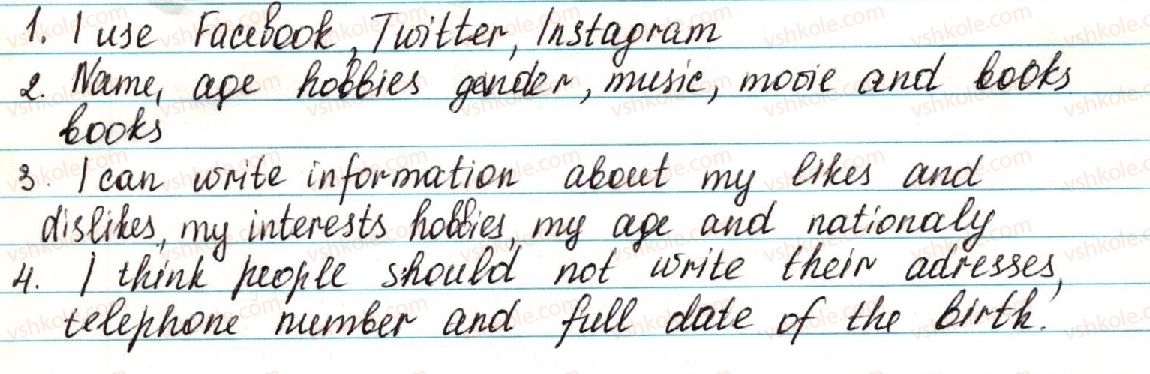 1. I use Facebook, Twitter, Instagram
2. Name, age hobbies gender, music, movie and books
books
3. I can write information about my likes and
dislikes, my interests hobbies, my age and nationaly
4. I think people should not write their adresses,
telephone number and full date of the birth.